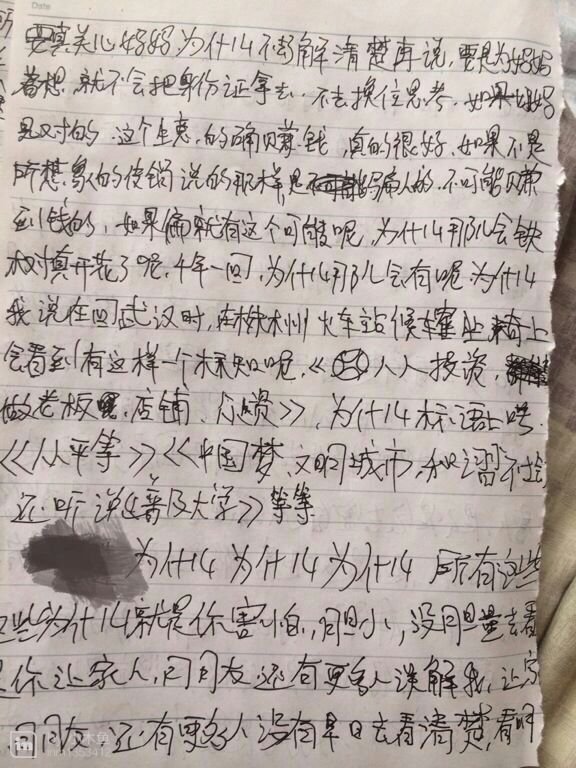 Date
要真关心妈妈为什么不能解清楚再说,要是为妈妈
着想,就不会把身份证拿去,不去换位思考,如果妈妈
是对的,这个生意,的确赚钱,真的很好,如果不是
所想象的传销说的那样,是骗人的,不可能赚
到钱的,如果偏就有这个可能呢,为什么那儿会铁
树开花了呢,千年一回,为什么那儿会有呢,为什么
我说在回武汉时,在郴州火车站候车座业椅上
会看到有这样一个标识呢,《人人投资,
做老板,店铺、众筹》,为什么标语上
《人人平等》《中国梦、文明城市,和谐社会
还听说《普及大学》等等
为什么为什么为什么 所有这些
这些为什么就是你害怕,胆小,没胆量去看
是你让家人,朋友还有更多人误解我,让家
朋友,还有更多人没有早日去看清楚,看明
in
木鱼